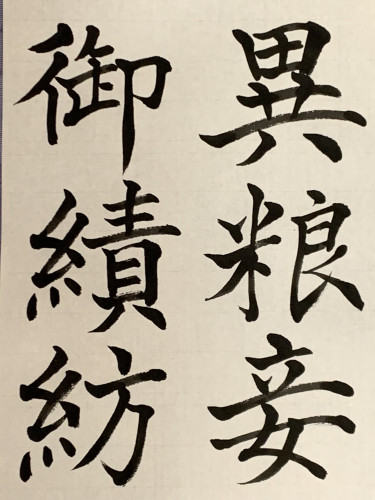 異粮妾
御績紡